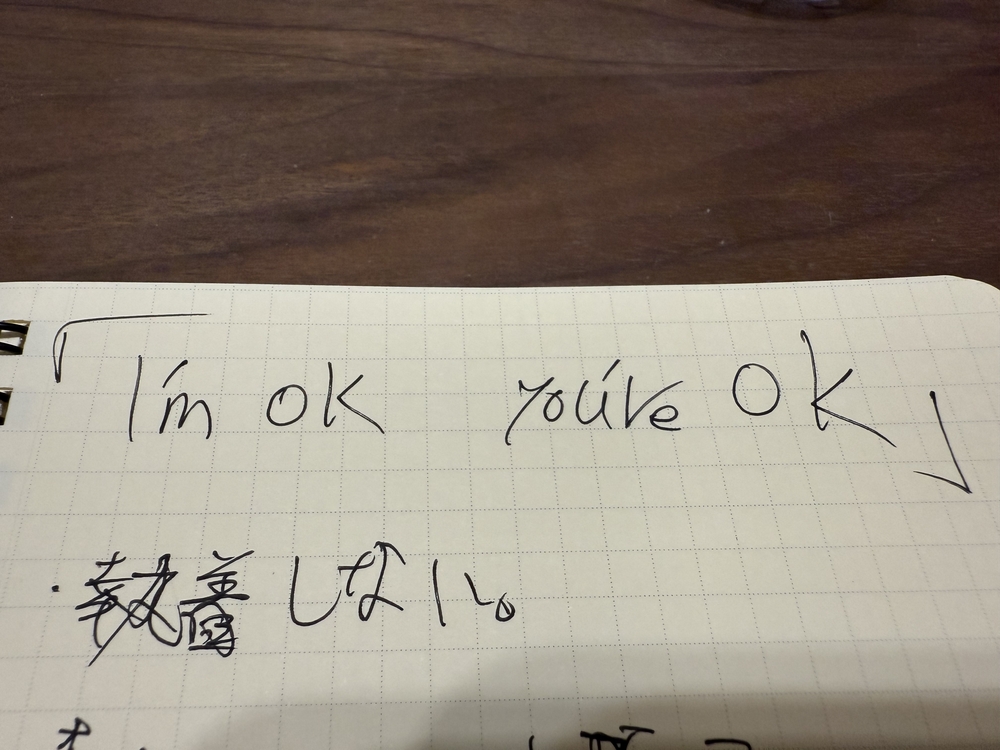 「I'm OK you're OK」
・執着しない。